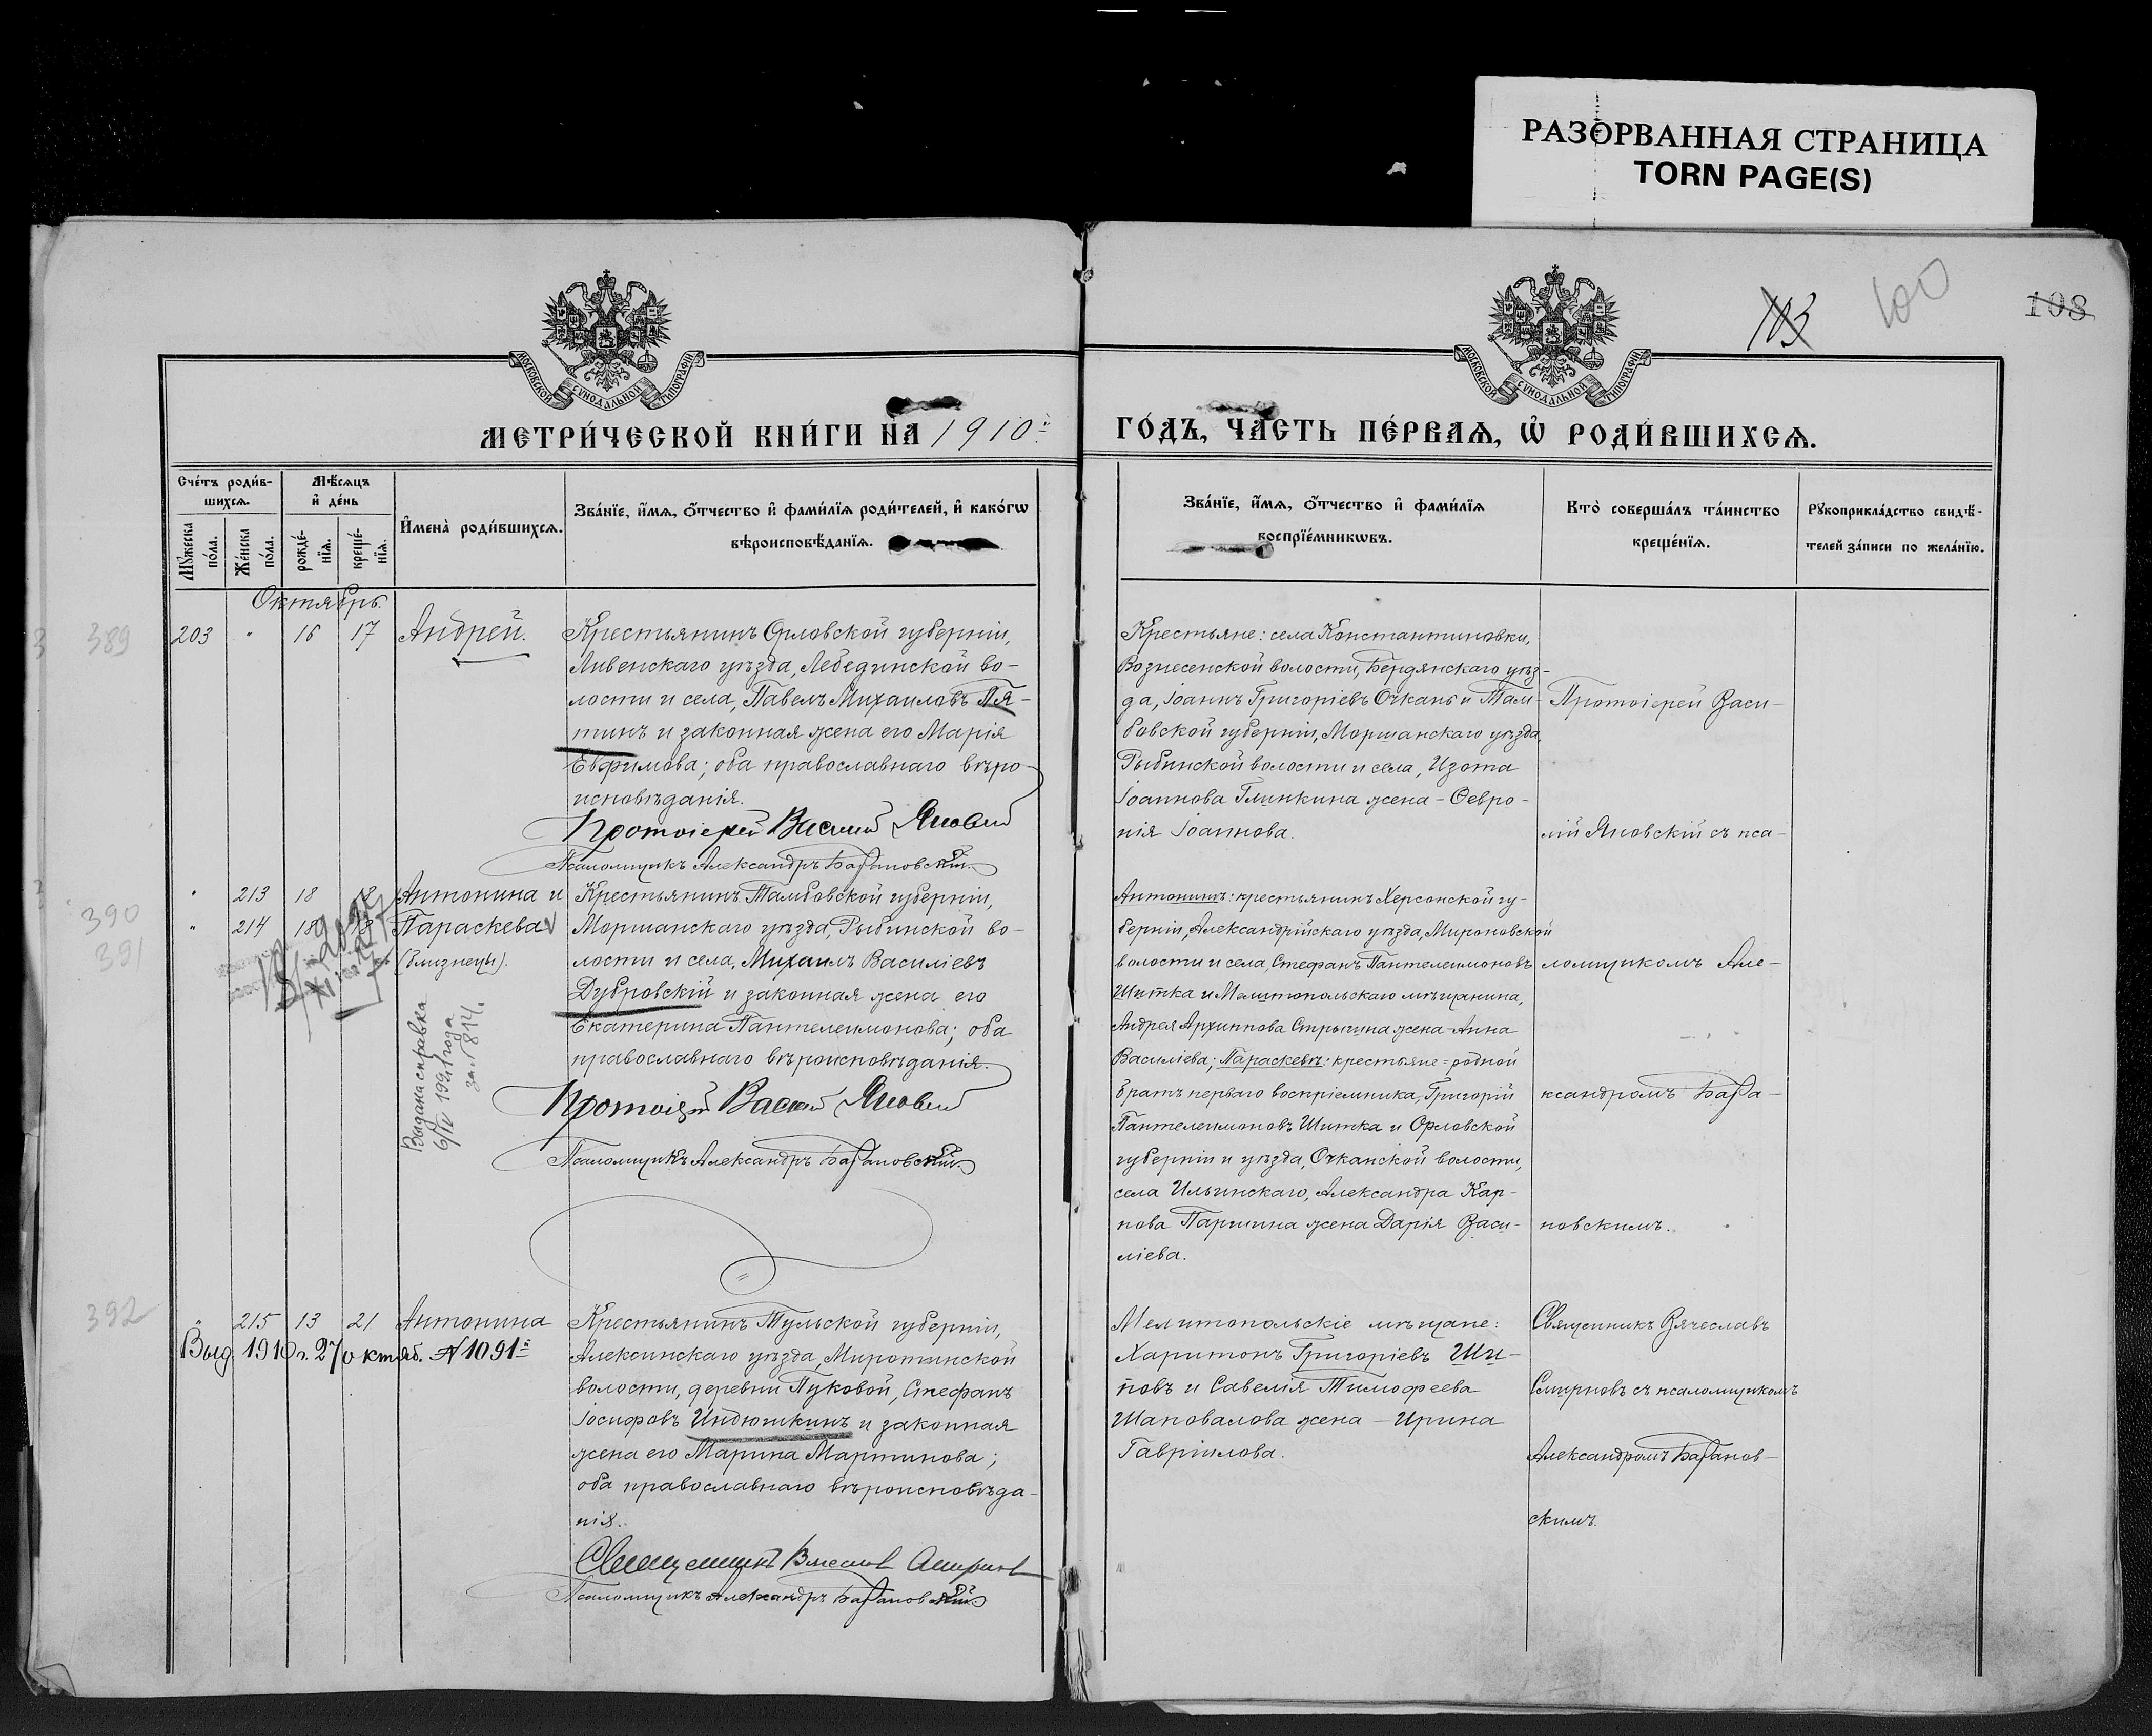 РАЗОРВАННАЯ СТРАНИЦА
TORN PAGE(S)
103
100
108
МОСКОВСКОЙ СѴНОДАЛЬНОЙ ТИПОГРАФІИ
МОСКОВСКОЙ СѴНОДАЛЬНОЙ ТИПОГРАФІИ
МЕТРИ́ЧЕСКОЙ КНИ́ГИ НА 1910й
ГО́ДЪ, ЧА́СТЬ ПЕ́РВАѦ, Ѡ҆ РОДИ́ВШИХСѦ.
Сче́тъ роди́в-
шихсѧ.
Мꙋ́жеска по́ла.
Же́нска по́ла.
Мѣ́сѧцъ
и҆ де́нь
рожде́-
нїѧ.
креще́-
нїѧ.
И҆мена̀ роди́вшихсѧ.
Зва́нїе, и҆́мѧ, ѻ҆́тчество и҆ фами́лїѧ роди́телей, и҆ како́гѡ
вѣроисповѣ́данїѧ.
Зва́нїе, и҆́мѧ, ѻ҆́тчество и҆ фами́лїѧ
воспрїе́мникѡвъ.
Кто̀ соверша́лъ та́инство
креще́нїѧ.
Рꙋкоприкла́дство свидѣ́-
телей за́писи по жела́нїю.
Октябрь.
389
203 " 16 17 Андрей.
Крестьянинъ Орловской губерніи,
Ливенскаго уѣзда, Лебединской во-
лости и села, Павелъ Михаиловъ Пя-
тинъ и законная жена его Марія
Евфимова; оба православнаго вѣро-
исповѣданія.
Протоіерей Василій Яновскій
Псаломщикъ Александръ Барановскій.
Крестьяне: села Константиновки,
Вознесенской волости, Бердянскаго уѣз-
да, Іоаннъ Григоріевъ Очкань и Там-
бовской губерніи, Моршанскаго уѣзда,
Рыбинской волости и села, Изота
Іоаннова Глинкина жена - Ѳевро-
нія Іоаннова.
Протоіерей Васи-
лій Яновскій съ пса-
ломщикомъ Але-
ксандромъ Бара-
новскимъ.
390
391
" 213 18 18 Антонина и
" 214 18 18 Параскева
(близнецы).
Выдана справка
6/IV 1991 года
за № 814.
Крестьянинъ Тамбовской губерніи,
Моршанскаго уѣзда, Рыбинской во-
лости и села, Михаилъ Василіевъ
Дубровскій и законная жена его
Екатерина Пантелеимонова; оба
православнаго вѣроисповѣданія.
Протоіерей Василій Яновскій
Псаломщикъ Александръ Барановскій.
Антонинѣ: крестьянинъ Херсонской гу-
берніи, Александрійскаго уѣзда, Мироновской
волости и села, Стефанъ Пантелеимоновъ
Шитка и Мелитопольскаго мѣщанина,
Андрея Архиппова Стрыгина жена - Анна
Василіева; Параскевѣ: крестьяне = родной
братъ перваго воспріемника, Григорій
Пантелеимоновъ Шитка и Орловской
губерніи и уѣзда, Очканской волости,
села Ильинскаго, Александра Кар-
пова Паршина жена Дарія Васи-
ліева.
392
" 215 13 21 Антонина
Выд. 1910 г. 27 октяб. № 1091й
Крестьянинъ Тульской губерніи,
Алексинскаго уѣзда, Миротинской
волости, деревни Пуковой, Стефанъ
Іосифовъ Индюшкинъ и законная
жена его Марина Мартинова;
оба православнаго вѣроисповѣда-
нія.
Священникъ Вячеславъ Смирновъ
Псаломщикъ Александръ Барановскій.
Мелитопольскіе мѣщане:
Харитонъ Григоріевъ Ши-
повъ и Савелія Тимофеева
Шаповалова жена - Ирина
Гавріилова.
Священникъ Вячеславъ
Смирновъ съ псаломщикомъ
Александромъ Баранов-
скимъ.